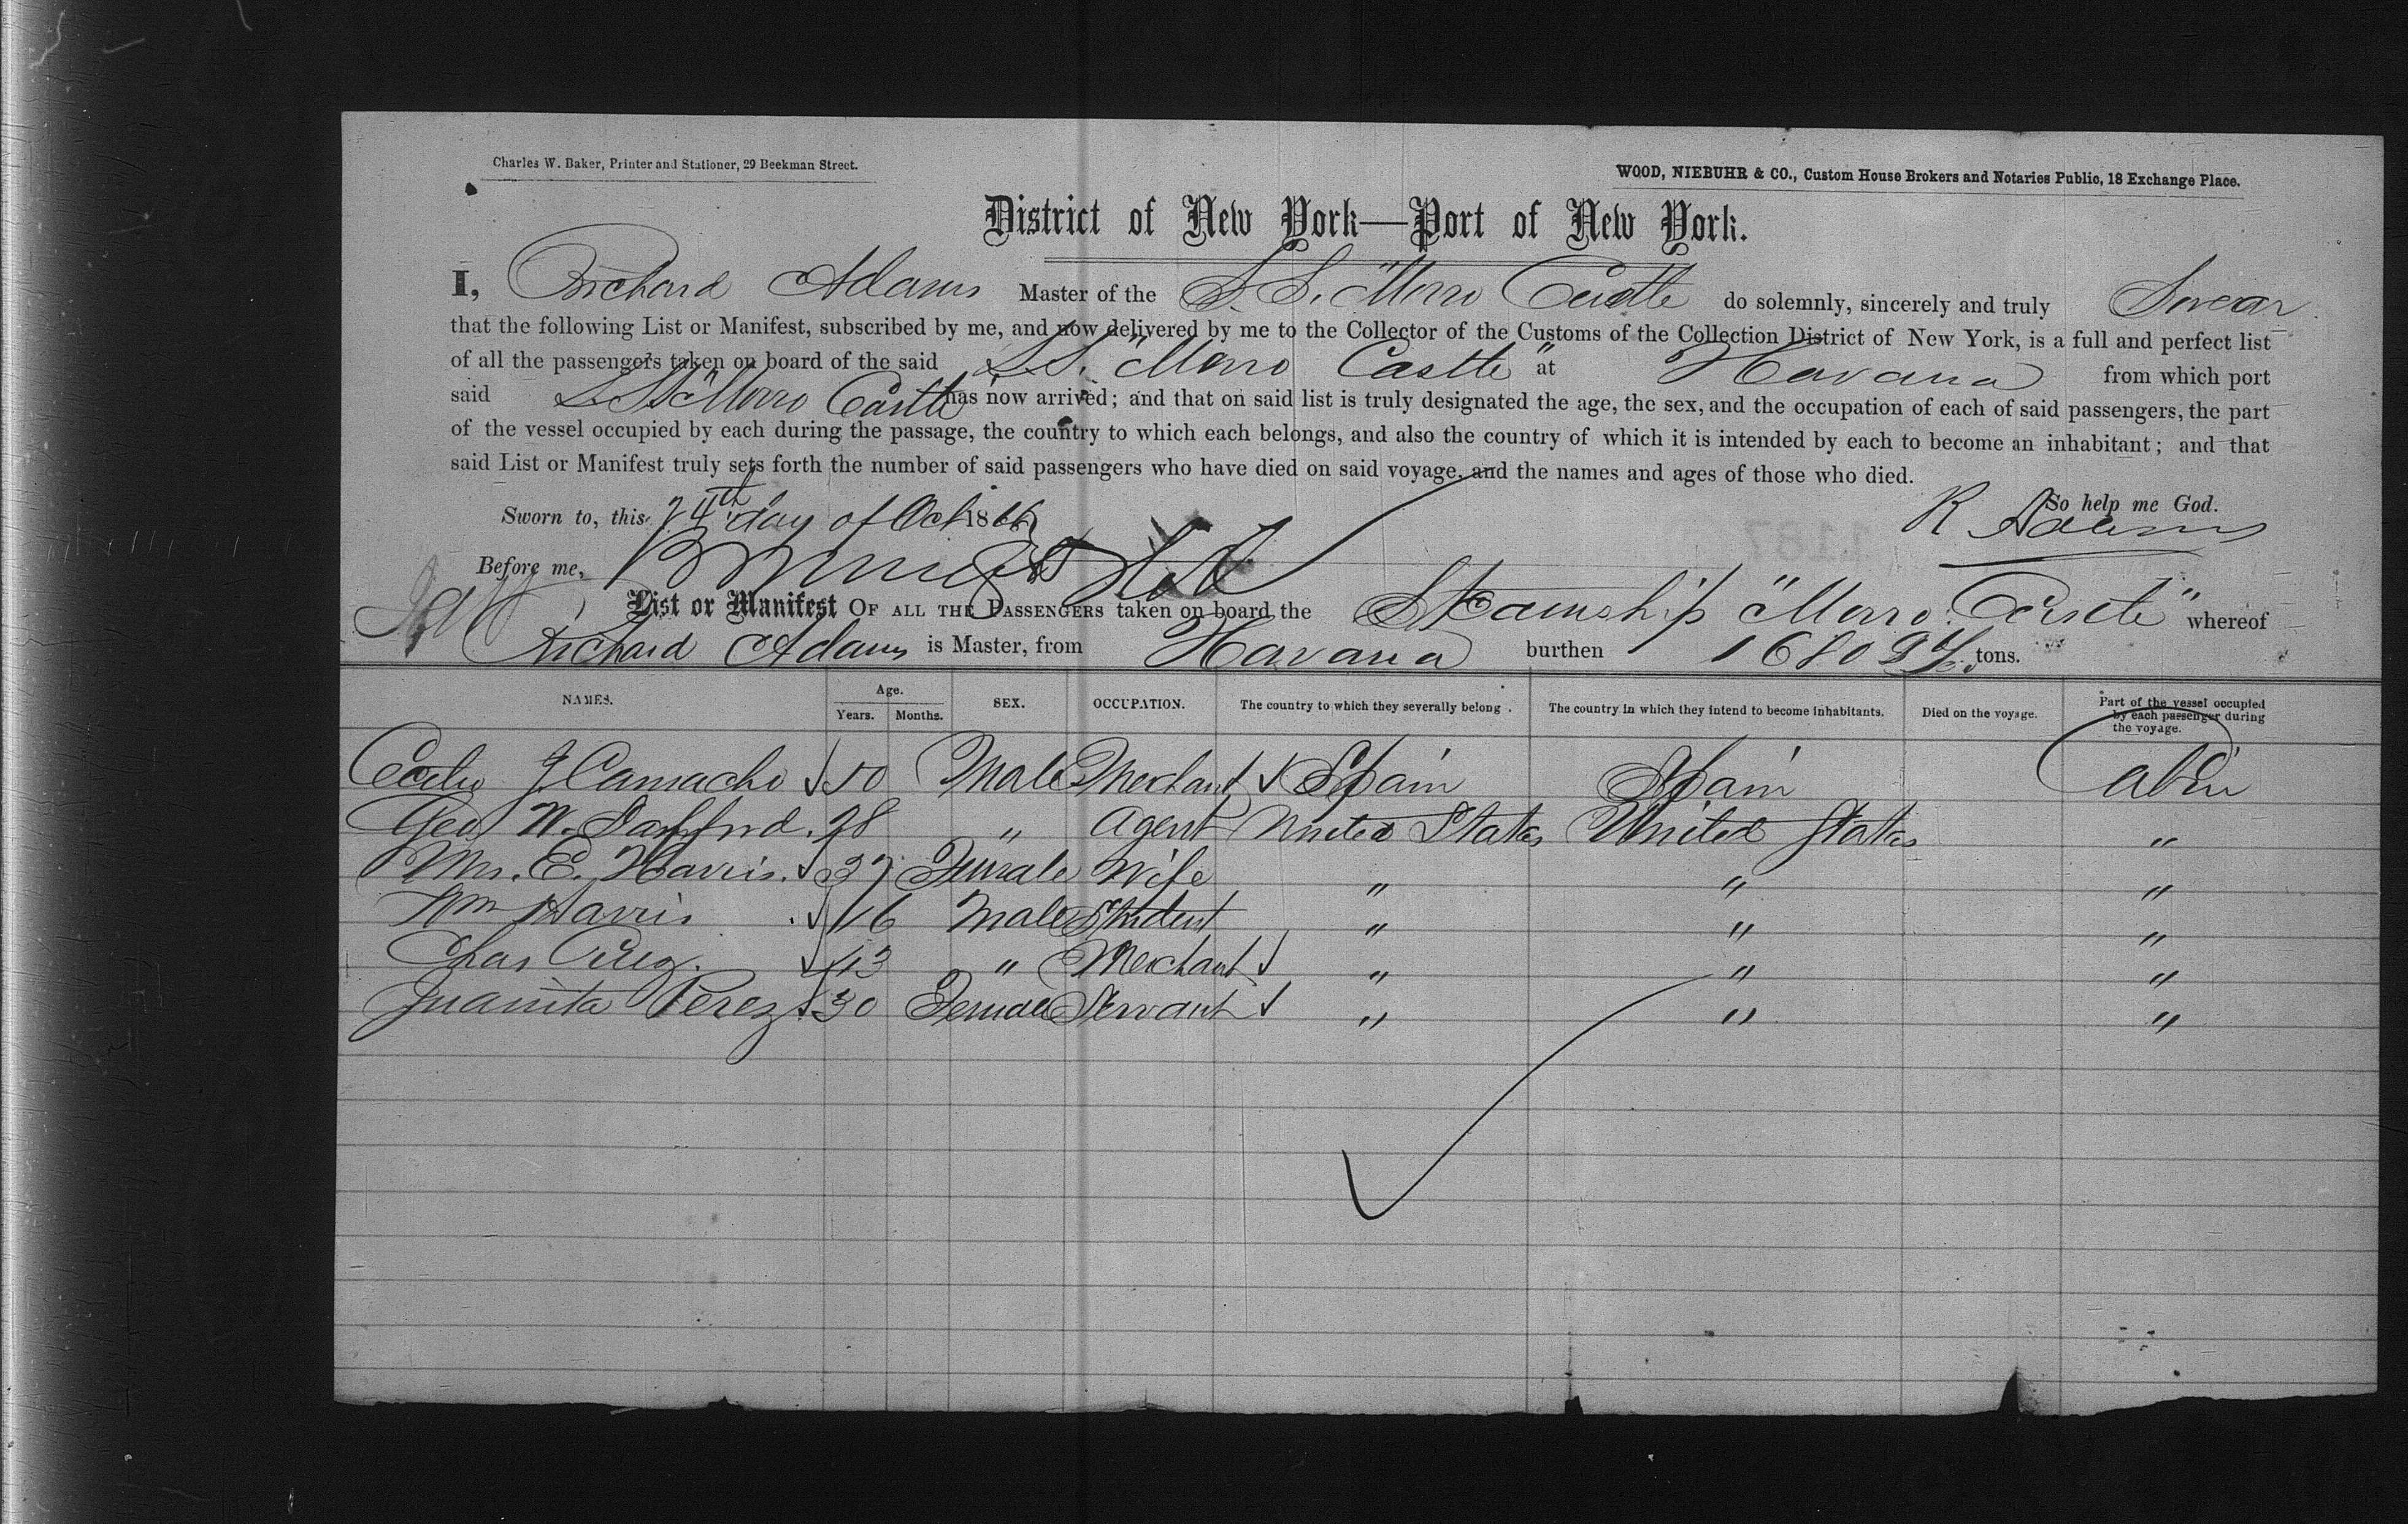 Charles W. Baker, Printer and Stationer, 29 Beekman Street.
WOOD, NIEBUHR & CO., Custom House Brokers and Notaries Public, 18 Exchange Place.
District of New York—Port of New York.
I, Richard Adams Master of the S.S. "Morro Castle do solemnly, sincerely and truly Swear
that the following List or Manifest, subscribed by me, and now delivered by me to the Collector of the Customs of the Collection District of New York, is a full and perfect list
of all the passengers taken on board of the said S.S. "Morro Castle" at Havana from which port
said S.S. "Morro Castle" has now arrived; and that on said list is truly designated the age, the sex, and the occupation of each of said passengers, the part
of the vessel occupied by each during the passage, the country to which each belongs, and also the country of which it is intended by each to become an inhabitant; and that
said List or Manifest truly sets forth the number of said passengers who have died on said voyage, and the names and ages of those who died.
So help me God.
Sworn to, this 24th day of Oct 1866
R Adams
Before me,
List or Manifest OF ALL THE PASSENGERS taken on board the Steamship "Morro Castle" whereof
Richard Adams is Master, from Havana burthen 1680 tons.
NAMES. Age. Years. Months. SEX. OCCUPATION. The country to which they severally belong. The country in which they intend to become inhabitants. Died on the voyage. Part of the vessel occupied by each passenger during the voyage.
J Camacho 50 Male Merchant Spain Spain Cabin
Geo W. 28 " Agent United States United States "
Mrs. E. Harris. 37 Female Wife " " "
Wm Harris 16 Male Student " " "
Chas Perez. 43 " Merchant " " "
Juanita Perez 30 Female Servant " " "